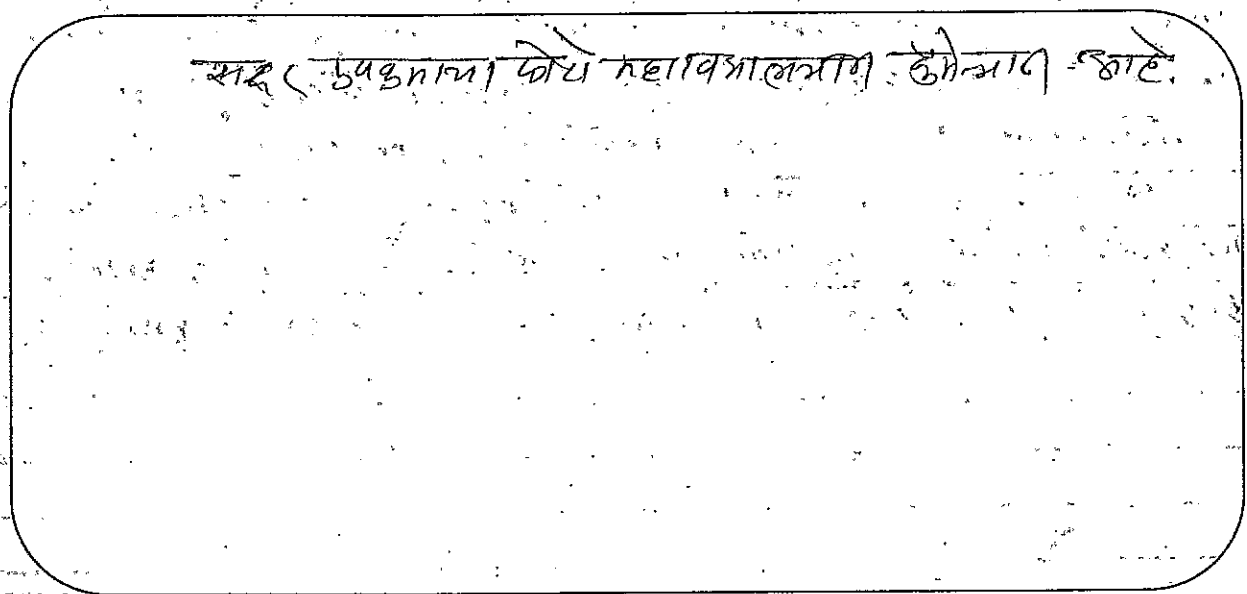 सदर उपक्रमाचा फोटो महाविद्यालयीन आहे.